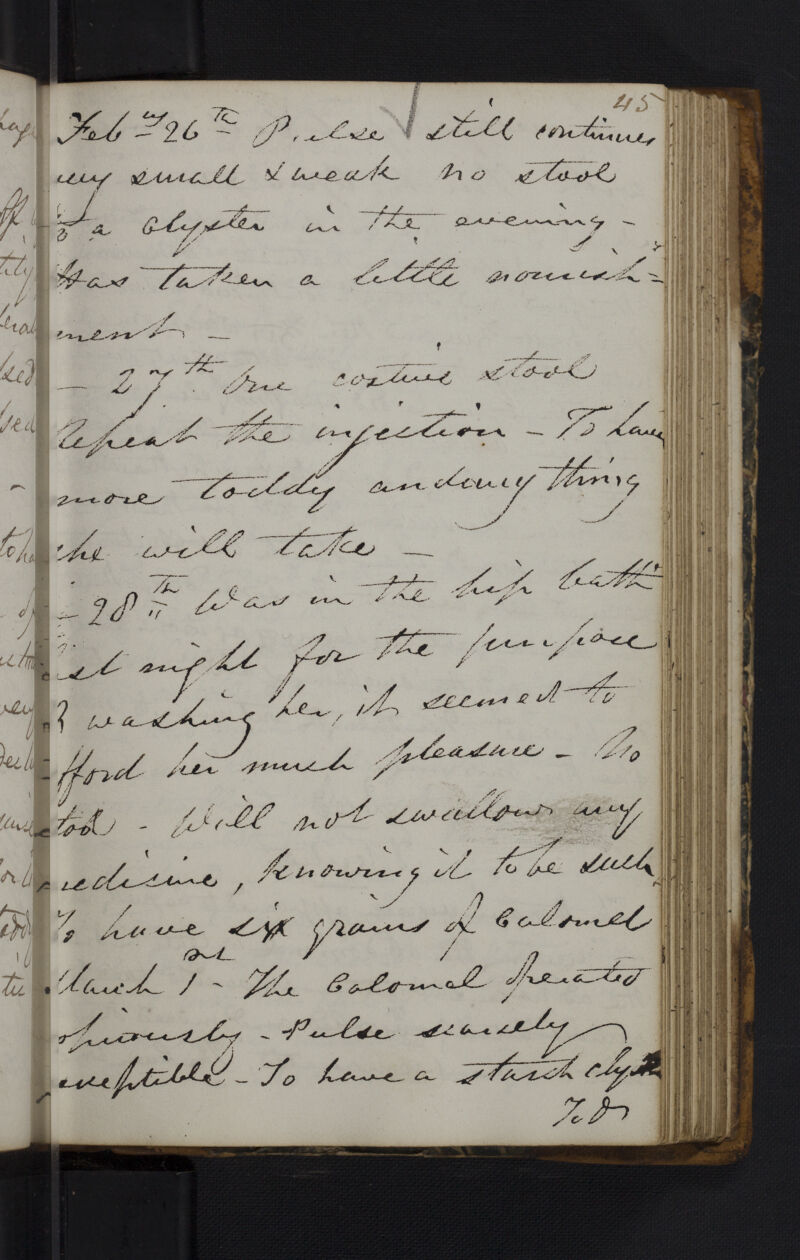 45
Feby 26th Pulse still continues
very small & weak no stool
a clyster in the evening -
Has taken a little nourish=
ment -
- 27th One costive stool
Repeat the injection - To have
more toddy and any thing
she will take -
- 28th Was in the hip bath
last night for the purpose
of washing her, it seemed to
afford her much pleasure - No
stool - Will not swallow any
medicine, knowing it to be such
To have six grains of Calomel
March 1st - The Calomel operated
copiously - Pulse scarcely
perceptible - To have a starch clyster